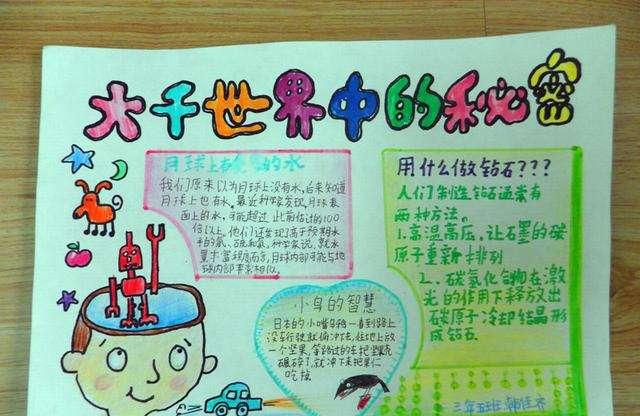 大千世界中的秘密
月球上 的水
我们原来以为月球上没有水,后来知道
月球上也有水。最近科学家发现,月球表
面上的水,可能超过此前估计的100
倍以上。他们还发现了高于预期水
平的氟、硫和氯,科学家说,就水
量丰富程度而言,月球内部可能与地
球内部非常相似。
用什么做钻石???
人们制造钻石通常有
两种方法。
1.高温高压,让石墨的碳
原子重新排列
2、碳氢化合物在激
光的作用下释放出
碳原子冷却结晶形
成钻石。
小鸟的智慧
日本的小嘴乌鸦一看到路上
没车行驶就俯冲下去,往地上放
一个坚果,等路过的车把坚壳
碾碎了,就冲下来把果仁
吃掉
三年五班